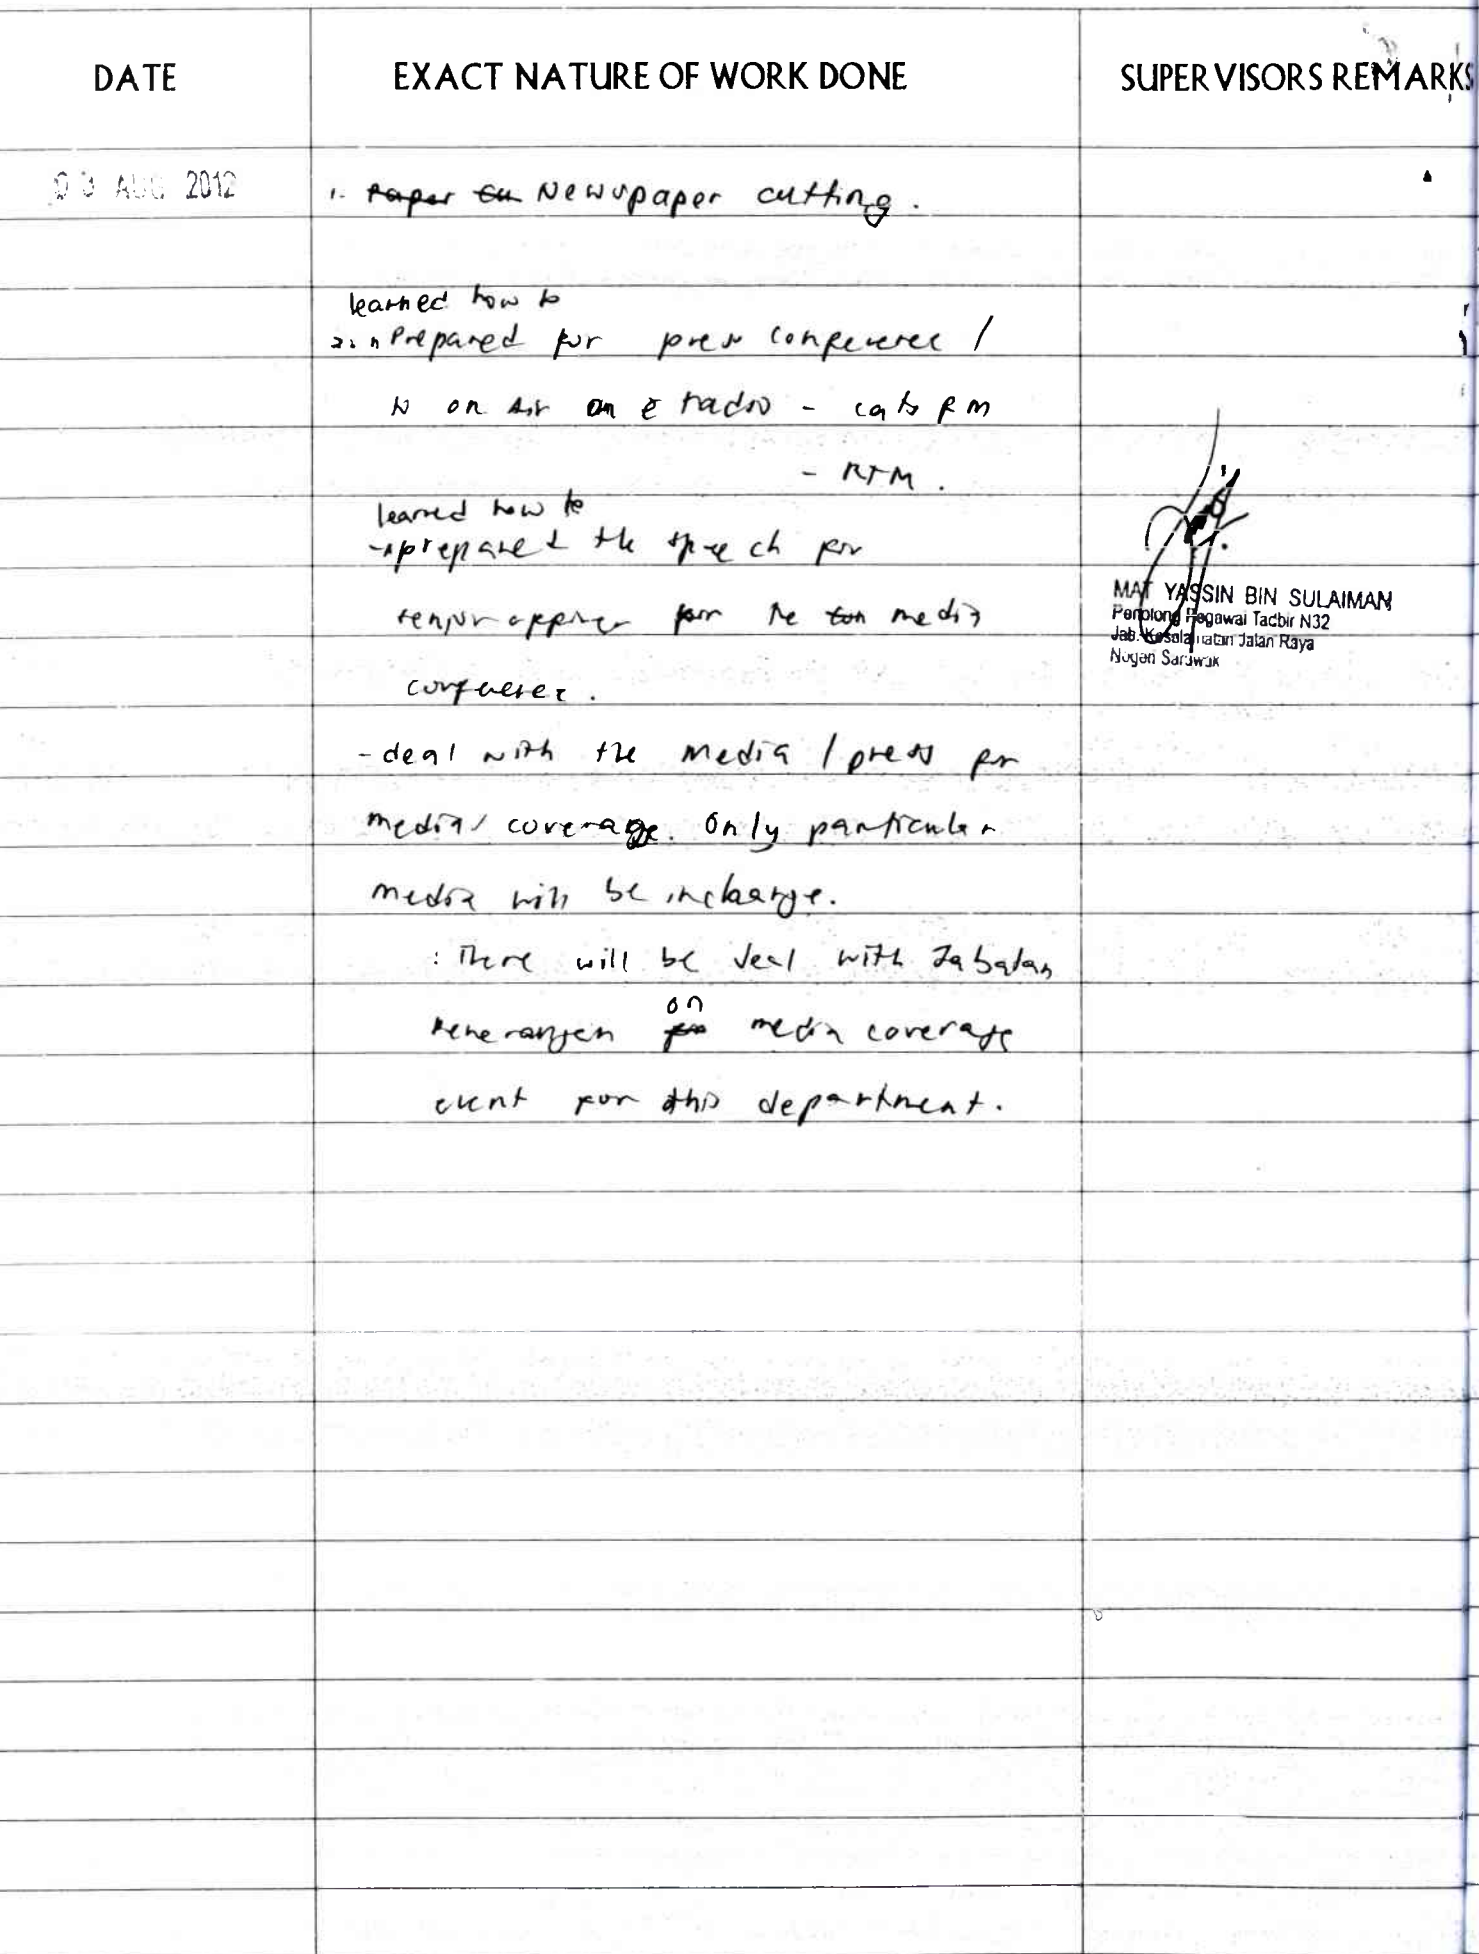 DATE EXACT NATURE OF WORK DONE SUPERVISORS REMARKS
03 AUG 2012 1. Paper cu Newspaper cutting.
learned how to
2. Prepared for press conference /
to on Air on radio - cats fm
- RTM.
learned how to
- prepared the speech for
senior officer for the media
conference.
- deal with the media / press for
media coverage. Only particular
media will be incharge.
: There will be deal with Jabatan
Penerangan on media coverage
event for this department.
MAT YASSIN BIN SULAIMAN
Penolong Pegawai Tadbir N32
Jab. Keselamatan Jalan Raya
Negeri Sarawak